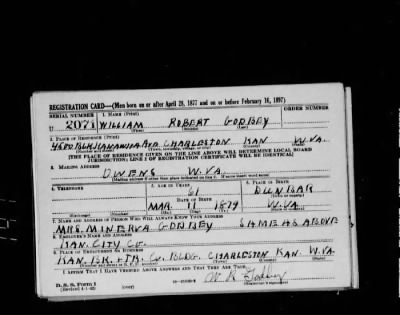 REGISTRATION CARD—(Men born on or after April 28, 1877 and on or before February 16, 1897)
SERIAL NUMBER 1. NAME (Print) ORDER NUMBER
U 2071 WILLIAM ROBERT GODBEY
(First) (Middle) (Last)
2. PLACE OF RESIDENCE (Print)
KANAWHA AVE CHARLESTON KAN W.VA.
(Number and street) (Town, township, village, or city) (County) (State)
[THE PLACE OF RESIDENCE GIVEN ON THE LINE ABOVE WILL DETERMINE LOCAL BOARD
JURISDICTION; LINE 2 OF REGISTRATION CERTIFICATE WILL BE IDENTICAL]
3. MAILING ADDRESS
OWENS W.VA.
[Mailing address if other than place indicated on line 2. If same insert word same]
4. TELEPHONE 5. AGE IN YEARS 6. PLACE OF BIRTH
DUNBAR
DATE OF BIRTH
MAR. 11 1879 W.VA.
(Exchange) (Number) (Mo.) (Day) (Yr.) (State or country)
7. NAME AND ADDRESS OF PERSON WHO WILL ALWAYS KNOW YOUR ADDRESS
MRS. MINERVA GODBEY SAME AS ABOVE
8. EMPLOYER'S NAME AND ADDRESS
KAN. CITY CO.
9. PLACE OF EMPLOYMENT OR BUSINESS
KAN. BK. + TR. CO. BLDG. CHARLESTON KAN. W.VA.
(Number and street or R. F. D. number) (Town) (County) (State)
I AFFIRM THAT I HAVE VERIFIED ABOVE ANSWERS AND THAT THEY ARE TRUE.
D. S. S. Form 1
(Revised 4-1-42) (over) W. R. Godbey
(Registrant's signature)